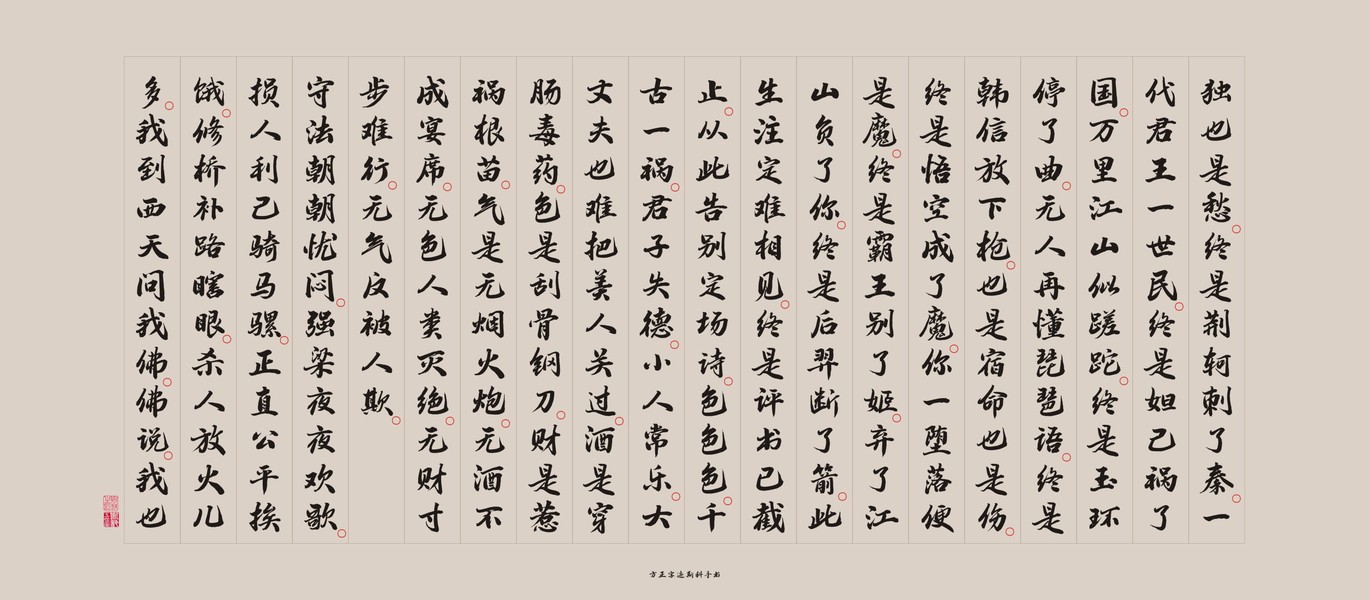 独也是愁。终是荆轲刺了秦。一
代君王一世民。终是妲己祸了
国。万里江山似蹉跎。终是玉环
停了曲。无人再懂琵琶语。终是
韩信放下枪。也是宿命也是伤。
终是悟空成了魔。你一堕落便
是魔。终是霸王别了姬。弃了江
山负了你。终是后羿断了箭。此
生注定难相见。终是评书已截
止。从此告别定场诗。色色色。千
古一祸。君子失德。小人常乐。大
丈夫也难把美人关过。酒是穿
肠毒药。色是刮骨钢刀。财是惹
祸根苗。气是无烟火炮。无酒不
成宴席。无色人类灭绝。无财寸
步难行。无气反被人欺。
守法朝朝忧闷。强梁夜夜欢歌。
损人利己骑马骡。正直公平挨
饿。修桥补路瞎眼。杀人放火儿
多。我到西天问我佛。佛说。我也
方正字迹斯科手书